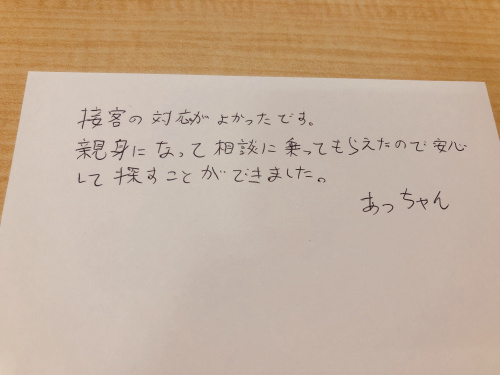 接客の対応がよかったです。
親身になって相談に乗ってもらえたので安心
して探すことができました。
あっちゃん